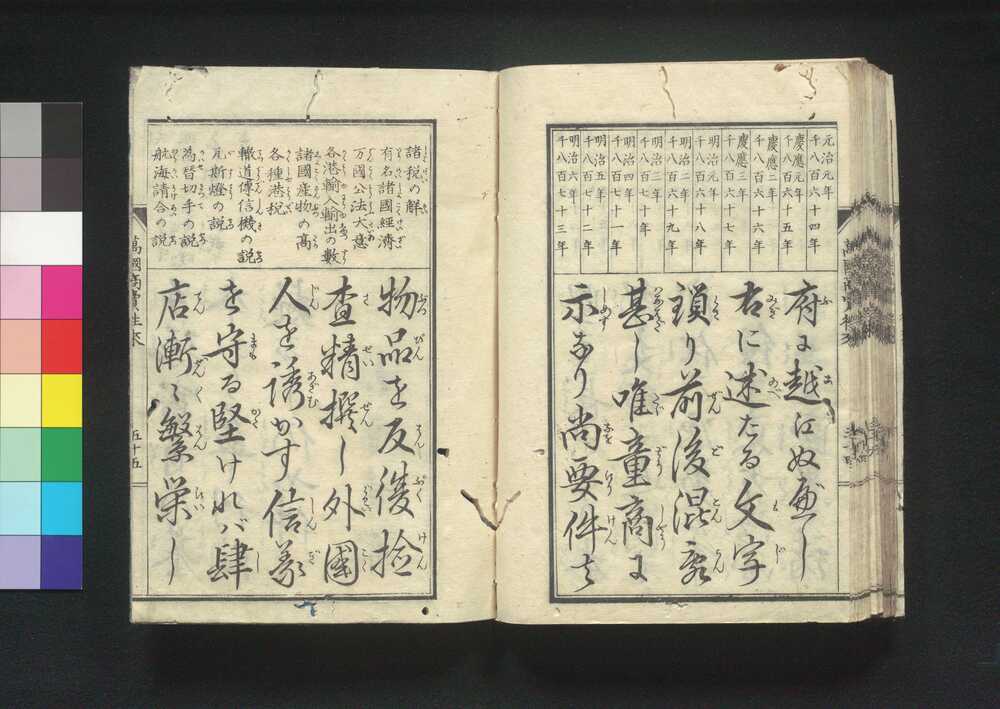 元治元年
千八百六十四年
慶應元年
千八百六十五年
慶應二年
千八百六十六年
慶應三年
千八百六十七年
明治元年
千八百六十八年
明治二年
千八百六十九年
明治三年
千八百七十年
明治四年
千八百七十一年
明治五年
千八百七十二年
明治六年
千八百七十三年
府に越江ぬべし
右に述たる文字
鎖り前後混雑
甚し唯童商に
示なり尚要件を
諸税の解
有名諸國經濟
万國公法大意
各港輸入輸出の數
諸國産物の髙
各種港税
轍道傳信機の説
瓦斯燈の説
為替切手の説
航海請合の説
物品を反復捡
査精撰し外國
人を誘かす信義
を守る堅けれバ肆
店漸々繁栄し
萬國商賣往来
五十五